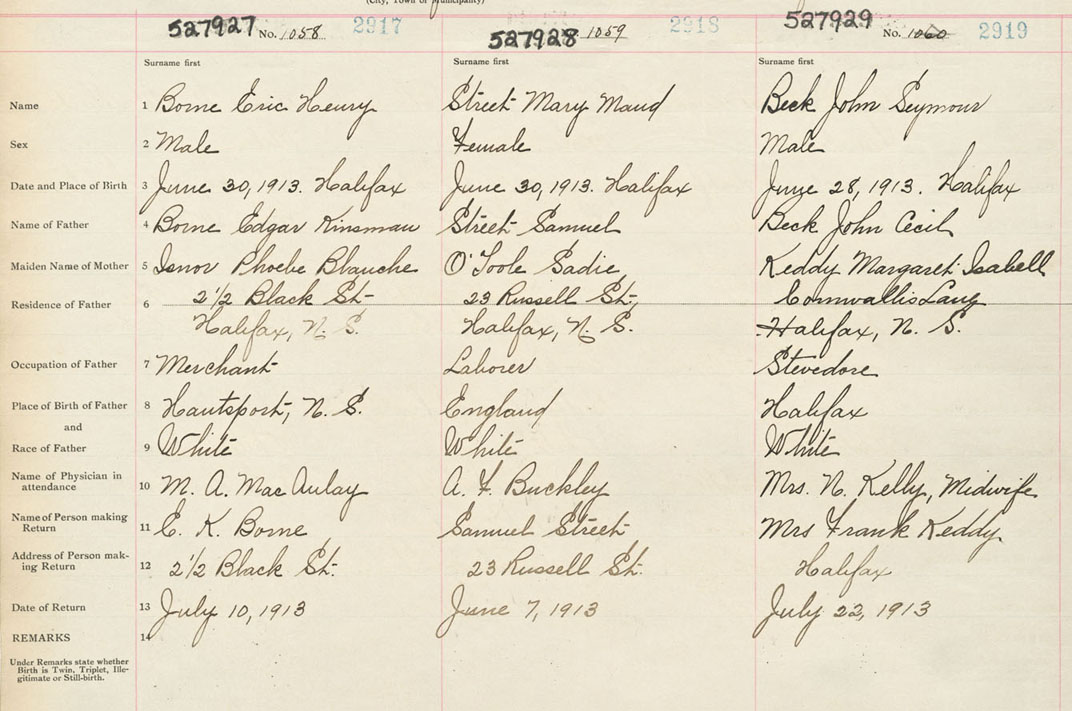 (City, Town or Municipality)
527927 No. 1058 2917 527928 1059 2918 527929 No. 1060 2919
Surname first Surname first Surname first
Name 1 Borne Eric Henry Street Mary Maud Beck John Seymour
Sex 2 Male Female Male
Date and Place of Birth 3 June 30, 1913. Halifax June 30, 1913. Halifax June 28, 1913. Halifax
Name of Father 4 Borne Edgar Kinsman Street Samuel Beck John Cecil
Maiden Name of Mother 5 Isnor Phoebe Blanche O'Toole Sadie Keddy Margaret Isabell
Residence of Father 6 2 1/2 Black St. 23 Russell St., Cornwallis
Halifax, N. S. Halifax, N. S. Halifax, N. S.
Occupation of Father 7 Merchant Laborer Stevedore
Place of Birth of Father 8 Hantsport, N. S. England Halifax
and
Race of Father 9 White White White
Name of Physician in
attendance 10 M. A. MacAulay A. F. Buckley Mrs. N. Kelly, Midwife
Name of Person making
Return 11 E. K. Borne Samuel Street Mrs Frank Keddy
Address of Person mak-
ing Return 12 2 1/2 Black St. 23 Russell St. Halifax
Date of Return 13 July 10, 1913 June 7, 1913 July 22, 1913
REMARKS 14
Under Remarks state whether
Birth is Twin, Triplet, Ille-
gitimate or Still-birth.